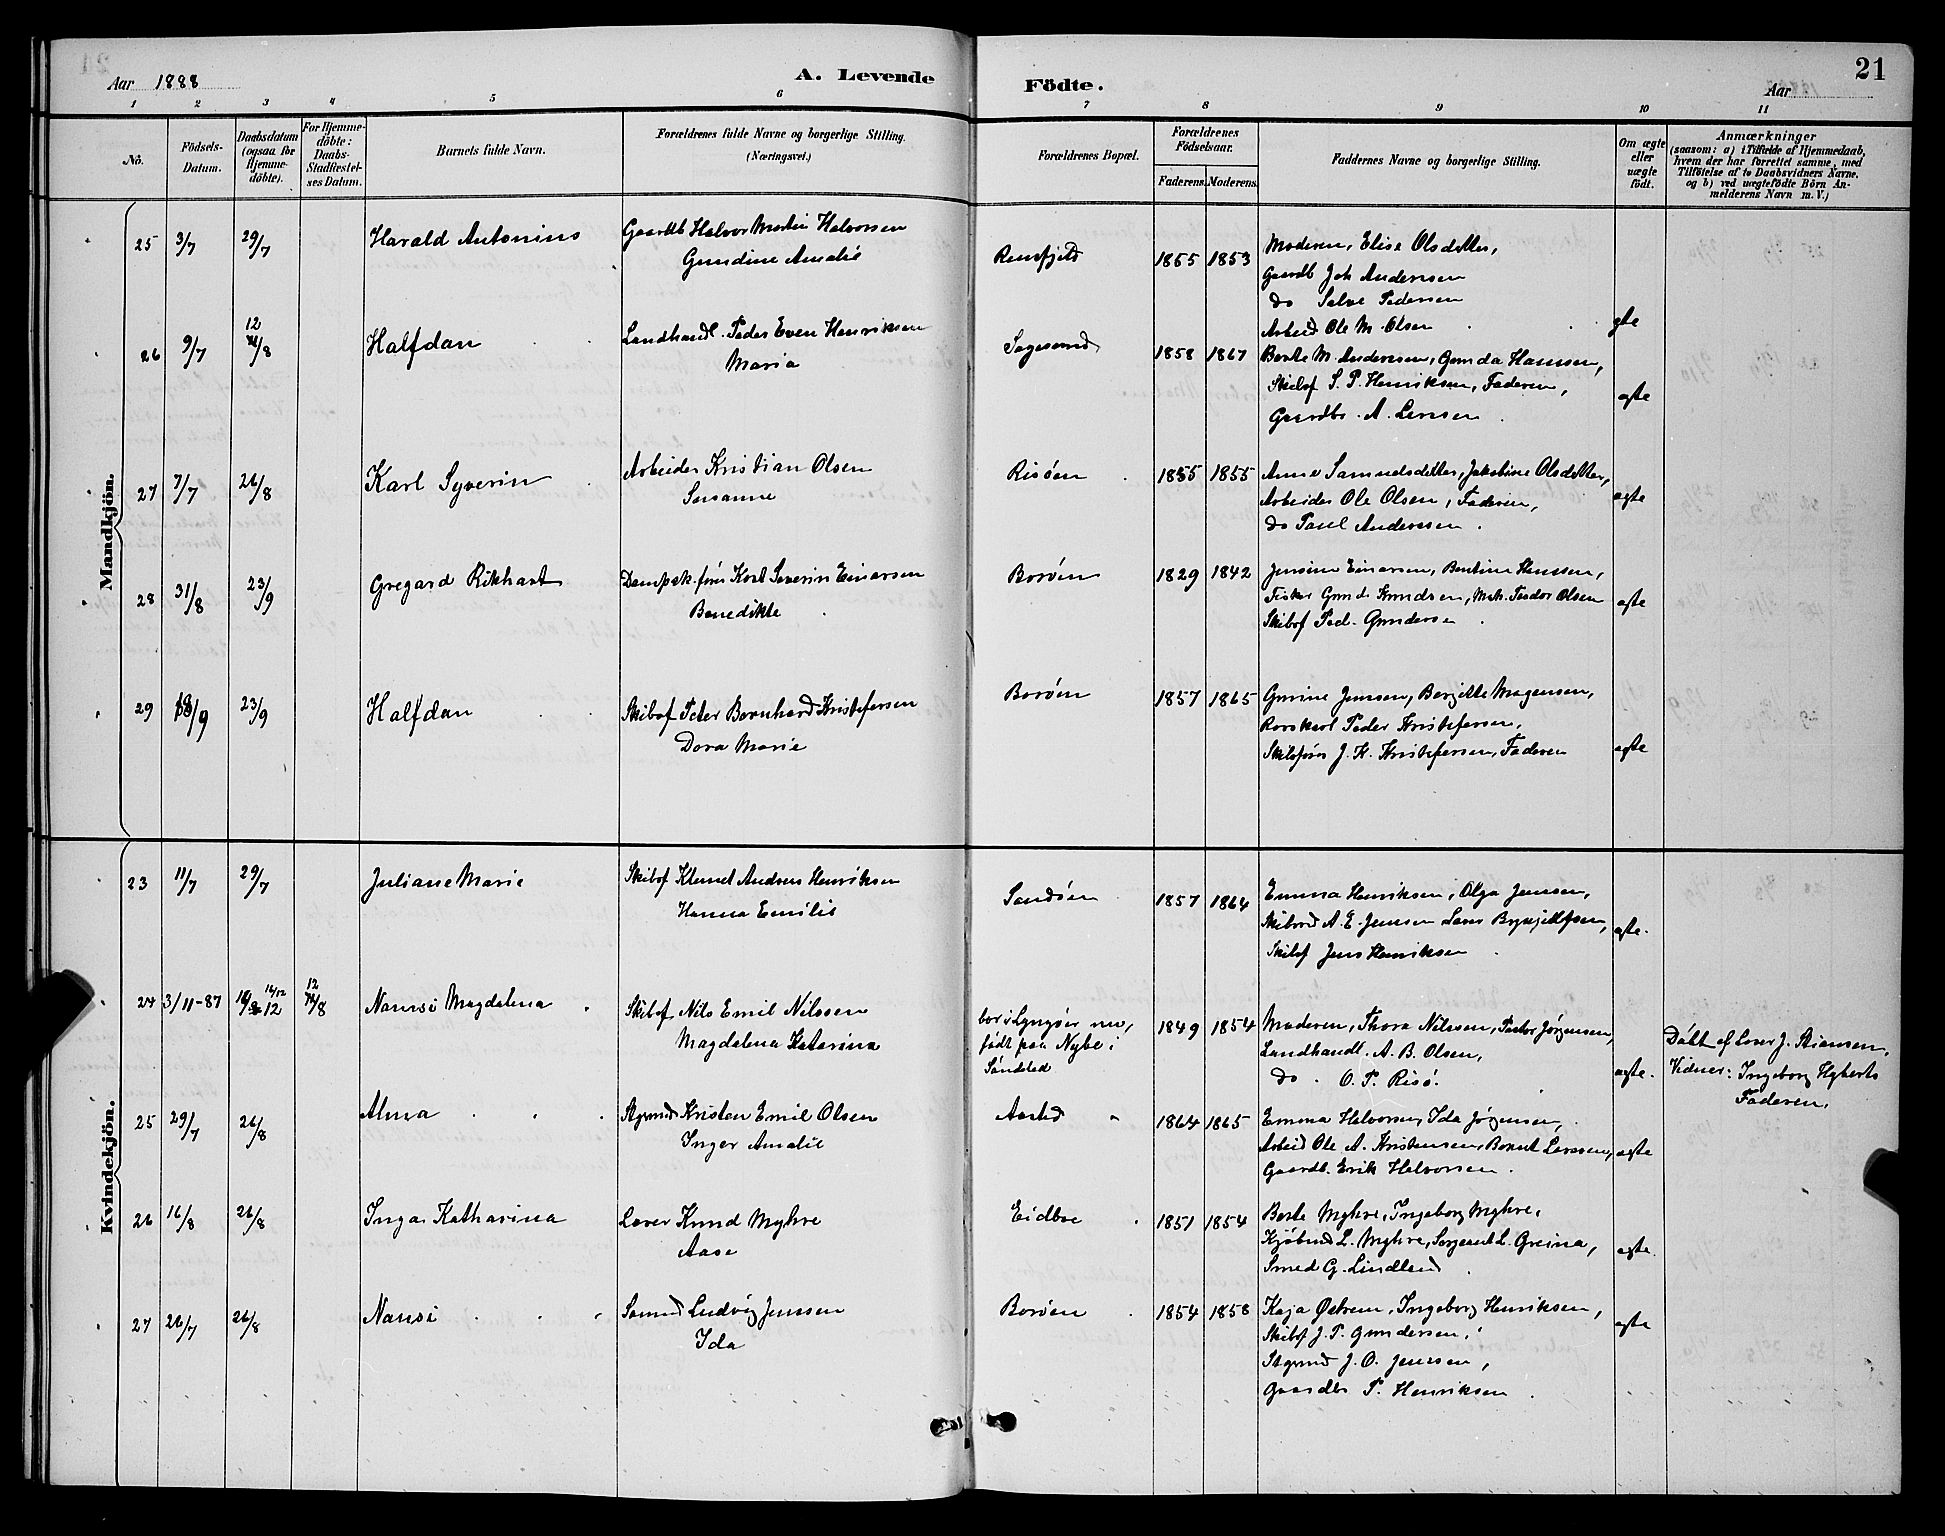 Aar 1888
A. Levende
Födte.
Aar
21
1 2 3 4 5 6 7 8 9 10 11
No.
Födsels-
Datum.
Daabsdatum
(ogsaa for
Hjemme-
döbte).
For Hjemme-
döbte:
Daabs-
Stadfæstel-
ses Datum.
Barnets fulde Navn.
Forældrenes fulde Navne og borgerlige Stilling.
(Næringsvei.)
Forældrenes Bopæl.
Forældrenes
Födselsaar.
Faderens. Moderens.
Faddernes Navne og borgerlige Stilling.
Om ægte
eller
uægte
födt.
Anmærkninger
(saasom: a) i Tilfælde af Hjemmedaab,
hvem der har forrettet samme, med
Tilföielse af to Daabsvidners Navne,
og b) ved uægtefödte Börn An-
melderens Navn m. V.)
Mandkjön.
25 3/7 29/7 Harald Antonius Gaardb Halvor Martin Halvorsen
Gundine Amalie
Rensfjeld 1855 1853 Moderen, Elise Olsdatter,
Gaardb Joh Andersen
do Salve Pedersen
Arbeid Ole M. Olsen
ægte
26 9/7 12/8 Halfdan Landhandl. Peder Even Henriksen
Maria
Sagesund 1858 1867 Berte M. Andersen, Gunda Hansen,
Skibsf S. P. Henriksen, Faderen,
Gaardbr. A. Larsen
ægte
27 7/7 26/8 Karl Syverin Arbeider Kristian Olsen
Susanne
Risøen 1855 1855 Anne Samuelsdatter, Jakobine Olsdatter,
Arbeider Ole Olsen, Faderen,
do Paul Andersen
ægte
28 31/8 23/9 Gregard Rikhart Dampsk.fører Karl Severin Einarsen
Benedikte
Borøen 1829 1842 Jensine Einarsen, Bentine Hanssen,
Fisker Gund Knudsen, Mat. Teodor Olsen
Skibsf Ped. Gundersen
ægte
29 18/9 23/9 Halfdan Skibsf Peter Bernhard Kristofersen
Dora Marie
Borøen 1857 1865 Gurine Jenssen, Bergitte Mogensen,
Rorskarl Peder Kristofersen,
Skibsfører J. K. Kristofersen, Faderen
ægte
Kvindekjön.
23 11/7 29/7 Juliane Marie Skibsf Klemet Andreas Henriksen
Hanna Emilie
Sandøen 1857 1864 Emma Henriksen, Olga Jensen,
A. E. Jenssen
Skibsf Jens Henriksen
ægte.
24 3/11-87 12 12/8 Nansi Magdalena Skibsf Nils Emil Nilssen
Magdalena Katarina
bor i Lyngøer nu,
født paa Nybe i
Søndeled
1849 1854 Moderen, Thora Nilssen, Pastor Jørgensen,
Landhandl. A. B. Olsen,
do. O. P. Risø.
ægte.
Døbt af Lærer J. Stiansen.
Vidner: Ingeborg
Faderen.
25 29/7 26/8 Alma Styrmd Kristen Emil Olsen
Inger Amalie
1864 1865 Emma Halvorsen, Ida Jørgensen,
Arbeid Ole A. Kristensen, Bernt Larssen,
Gaardb. Erik Halvorsen
ægte
26 16/8 26/8 Inga Katharina Lærer Knud Myhre
Aase
Eidbo 1851 1854 Berte Myhre, Ingeborg Myhre,
Kjøbmd L. Myhre, Sergeant L. Greina,
Smed G. Lindland
ægte.
27 26/7 26/8 Nansi Sømd Ludvig Jenssen
Ida
Borøen 1854 1858 Kaja Østrem, Ingeborg Henriksen,
Skibsf J. P. Gundersen,
Styrmd J. O. Jenssen,
Gaardbr P. Henriksen
ægte